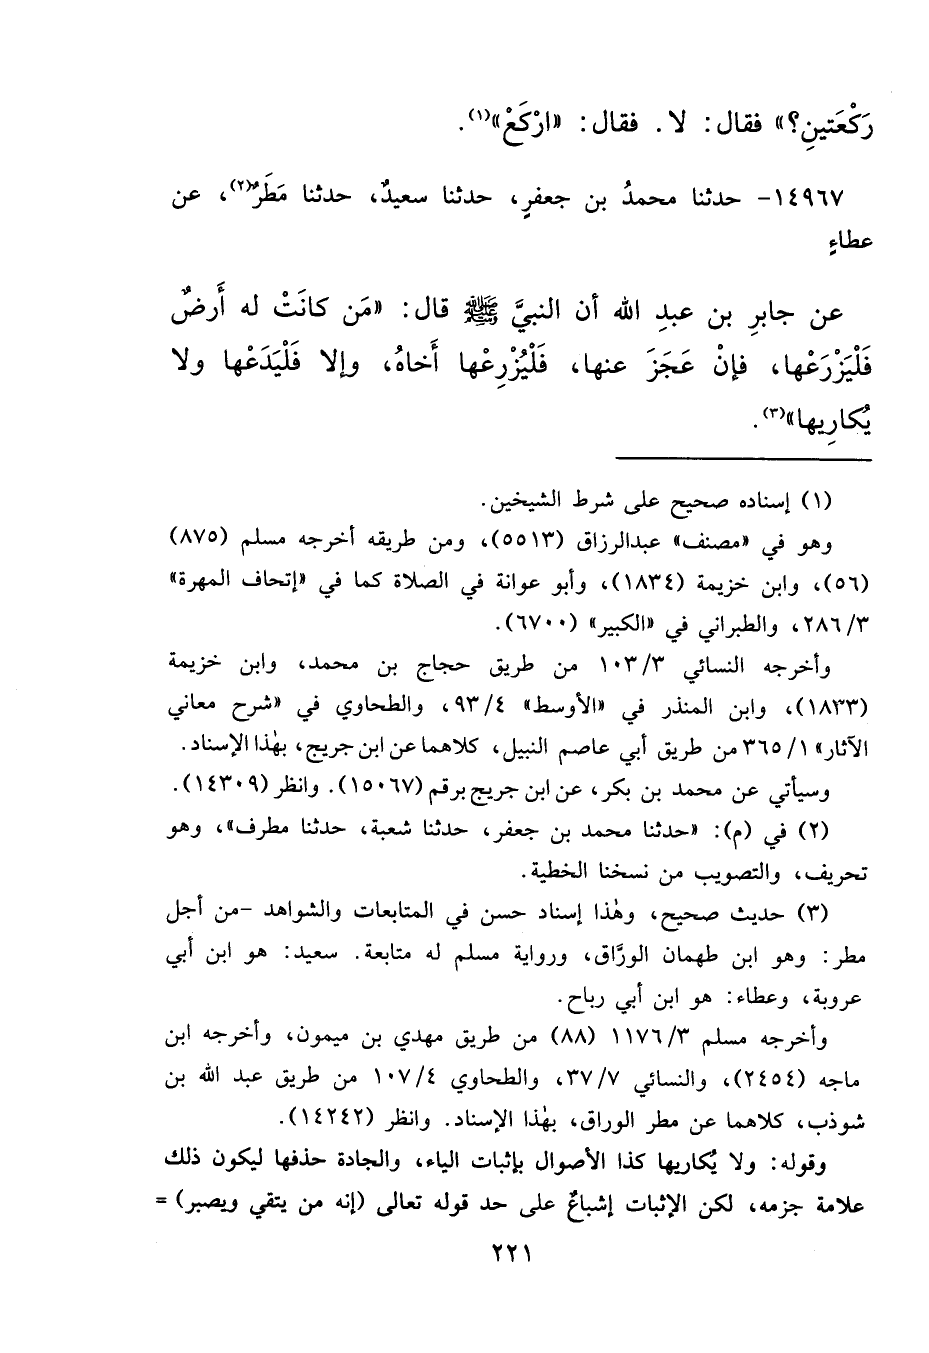 رَكْعَتينِ؟» فقال: لا. فقال: «ارْكَعْ»(١).
١٤٩٦٧- حدثنا محمدُ بن جعفرٍ، حدثنا سعيدٌ، حدثنا مَطَرٌ(٢)، عن
عطاءٍ
عن جابرِ بن عبدِ الله أن النبيَّ ﷺ قال: «مَن كانَتْ له أَرضٌ
فَلْيَزْرَعْها، فإنْ عَجَزَ عنها، فَلْيُزْرِعْها أَخاهُ، وإلا فَلْيَدَعْها ولا
يُكارِيها»(٣).
(١) إسناده صحيح على شرط الشيخين.
وهو في «مصنف» عبدالرزاق (٥٥١٣)، ومن طريقه أخرجه مسلم (٨٧٥)
(٥٦)، وابن خزيمة (١٨٣٤)، وأبو عوانة في الصلاة كما في «إتحاف المهرة»
٢٨٦/٣، والطبراني في «الكبير» (٦٧٠٠).
وأخرجه النسائي ١٠٣/٣ من طريق حجاج بن محمد، وابن خزيمة
(١٨٣٣)، وابن المنذر في «الأوسط» ٩٣/٤، والطحاوي في «شرح معاني
الآثار» ٣٦٥/١ من طريق أبي عاصم النبيل، كلاهما عن ابن جريج، بهٰذا الإسناد.
وسيأتي عن محمد بن بكر، عن ابن جريج برقم (١٥٠٦٧). وانظر (١٤٣٠٩).
(٢) في (م): «حدثنا محمد بن جعفر، حدثنا شعبة، حدثنا مطرف»، وهو
تحريف، والتصويب من نسخنا الخطية.
(٣) حديث صحيح، وهٰذا إسناد حسن في المتابعات والشواهد -من أجل
مطر: وهو ابن طهمان الورَّاق، ورواية مسلم له متابعة. سعيد: هو ابن أبي
عروبة، وعطاء: هو ابن أبي رباح.
وأخرجه مسلم ١١٧٦/٣ (٨٨) من طريق مهدي بن ميمون، وأخرجه ابن
ماجه (٢٤٥٤)، والنسائي ٣٧/٧، والطحاوي ١٠٧/٤ من طريق عبد الله بن
شوذب، كلاهما عن مطر الوراق، بهٰذا الإسناد. وانظر (١٤٢٤٢).
وقوله: ولا يُكاريها كذا الأصوال بإثبات الياء، والجادة حذفها ليكون ذلك
علامة جزمه، لكن الإثبات إشباعٌ على حد قوله تعالى (إنه من يتقي ويصبر) =
٢٢١